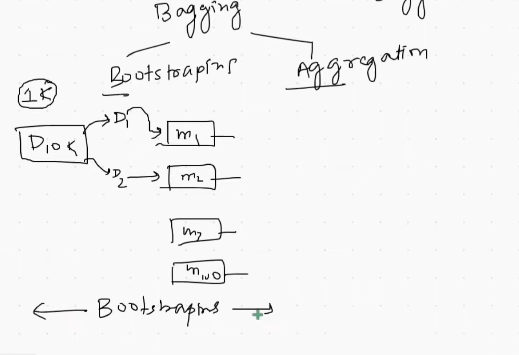 Bagging
Bootstraping
Aggregation
1K
D10K
D1
m1
D2
m2
m3
m100
Bootstraping